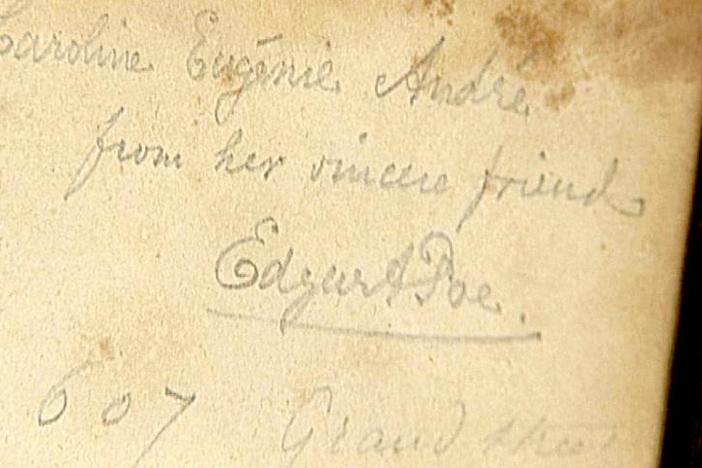 Caroline Eugénie André
from her sincere friend
Edgar A Poe.
607 Grand street